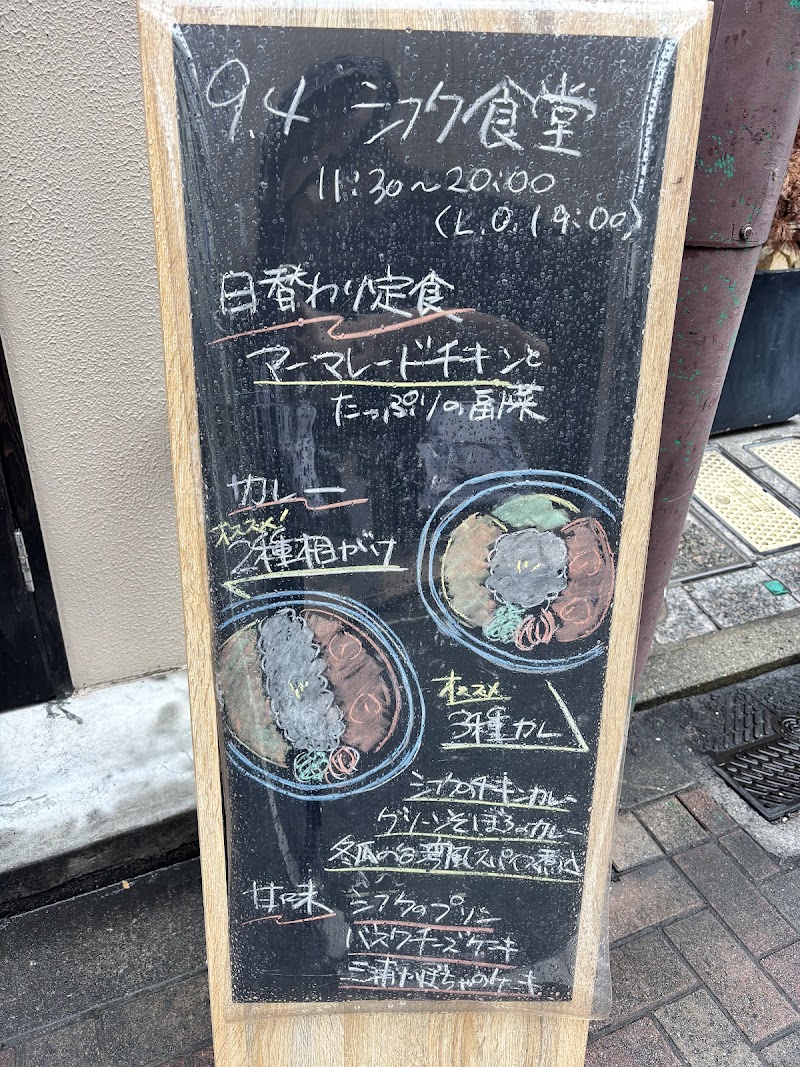 9.4 シフク食堂
11:30~20:00
(L.O.19:00)
日替わり定食
マーマレードチキンと
たっぷりの副菜
カレー
オススメ!
2種相がけ
オススメ
3種カレー
シフクのチキンカレー
グリーンそぼろのカレー
冬瓜の台湾風スパイス煮込
甘味
シフクのプリン
バスクチーズケーキ
三浦かぼちゃのケーキ